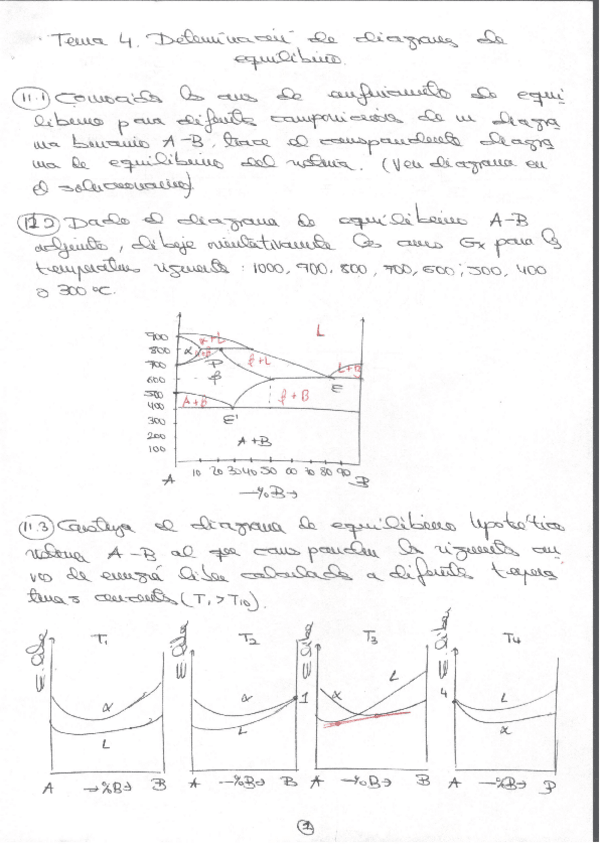 Tema 4. Determinación de diagramas de
equilibrio.
11.1 Conocidas las curvas de enfriamiento de equi
librio para diferentes composiciones de un diagra
ma binario A-B, trace el correspondiente diagra
ma de equilibrio del sistema. (Ver diagrama en
el solucionario)
12.2 Dado el diagrama de equilibrio A-B
adjunto, dibuje cualitativamente las curvas Gx para las
temperaturas siguientes: 1000, 900, 800, 700, 600, 500, 400
300 ºC.
L
900
800
700
600
500
400
300
200
100
α
α+L
P
β
β+L
L+B
E
A+β
β+B
E'
A+B
10 20 30 40 50 60 70 80 90
A
B
→%B→
11.3 Construya el diagrama de equilibrio hipotético
sistema A-B al que corresponden las siguientes cur
vas de energía libre calculadas a diferentes tempera
turas (T1>T10).
E. Libre T1 E. Libre T2 E. Libre T3 E. Libre T4
α
L
α
L
1
α
L
4
L
α
A →%B→ B A →%B→ B A →%B→ B A →%B→ B
1